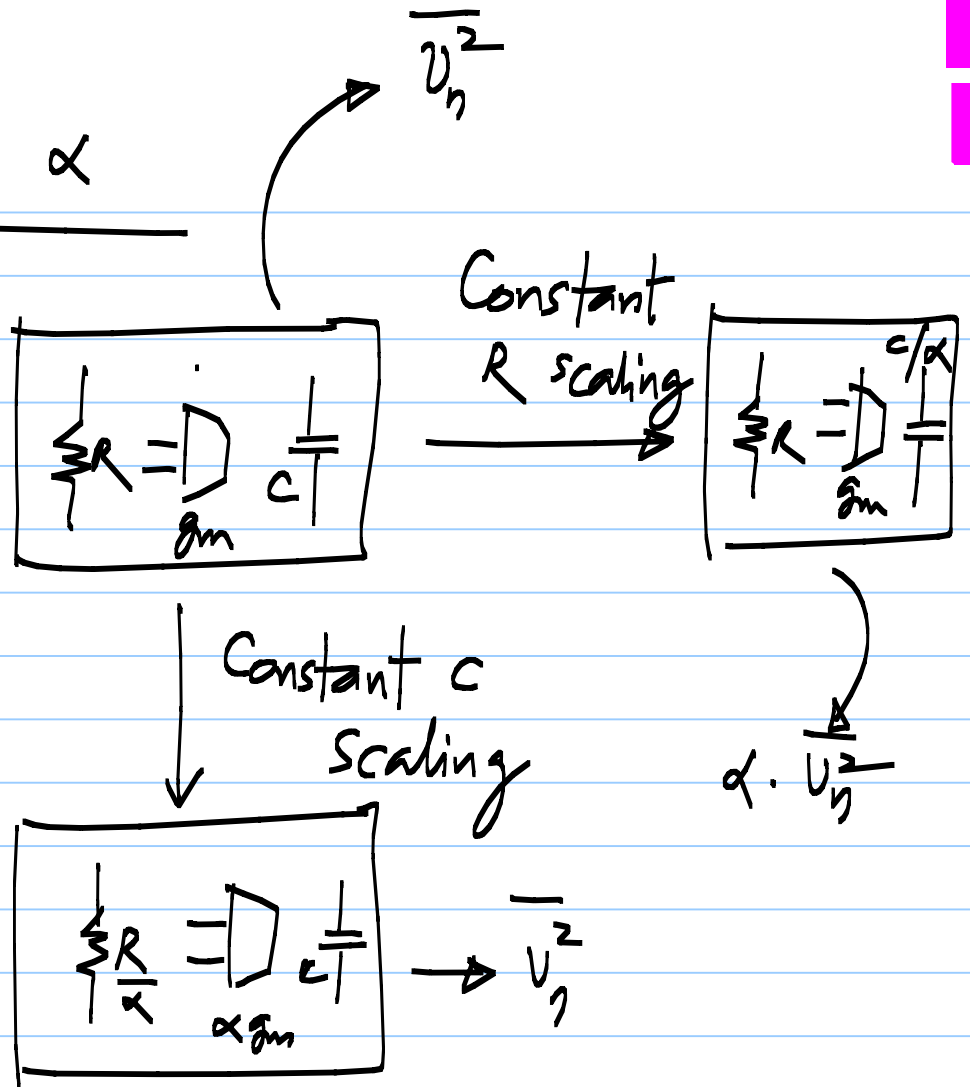 v̅ₙ²
α
Constant
R scaling
R
gm
C
R
gm
c/α
Constant c
Scaling
α · v̅ₙ²
R/α
αgm
c
v̅ₙ²